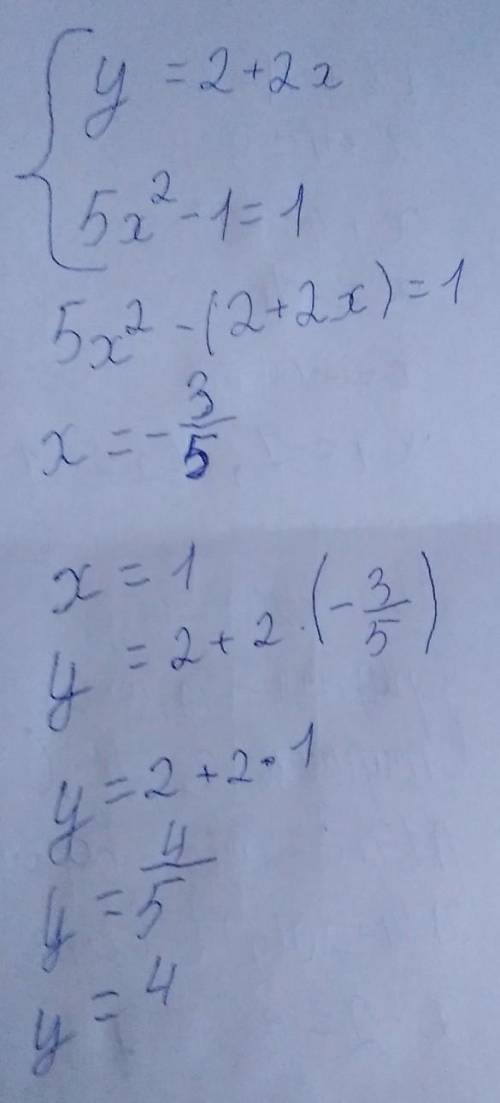 y = 2 + 2x
5x² - 1 = 1
5x² - (2 + 2x) = 1
x = - 3/5
x = 1
y = 2 + 2 · (- 3/5)
y = 2 + 2 · 1
y = 4/5
y = 4